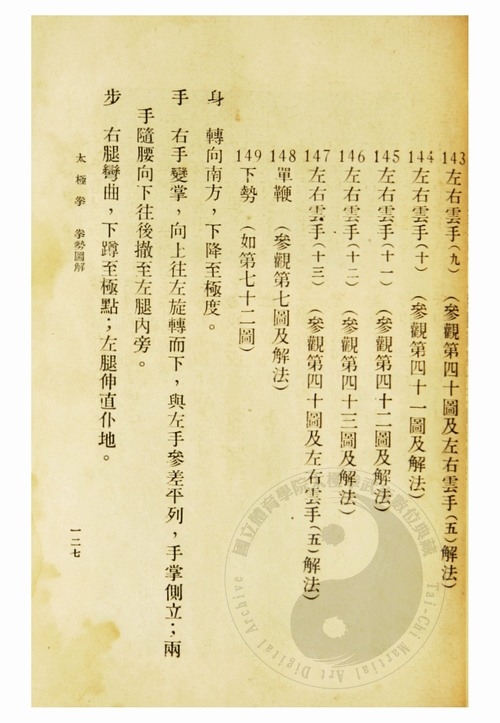 143 左右雲手（九）　（參觀第四十圖及左右雲手（五）解法）
144 左右雲手（十）　（參觀第四十一圖及解法）
145 左右雲手（十一）　（參觀第四十二圖及解法）
146 左右雲手（十二）　（參觀第四十三圖及解法）
147 左右雲手（十三）　（參觀第四十圖及左右雲手（五）解法）
148 單鞭　（參觀第七圖及解法）
149 下勢　（如第七十二圖）
身　轉向南方，下降至極度。
手　右手變掌，向上往左旋轉而下，與左手參差平列，手掌側立；兩
手隨腰向下往後撤至左腿內旁。
步　右腿彎曲，下蹲至極點；左腿伸直仆地。
太極拳　拳勢圖解
一二七
國立體育學院太極拳武藝數位典藏
Tai-Chi Martial Art Digital Archive